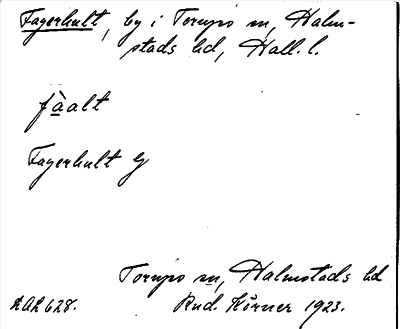 Fagerhult, by i Torups sn, Halm-
stads hd, Hall. l.
fàalt
Fagerhult
Torups sn, Halmstads hd
Rud. Körner 1923.